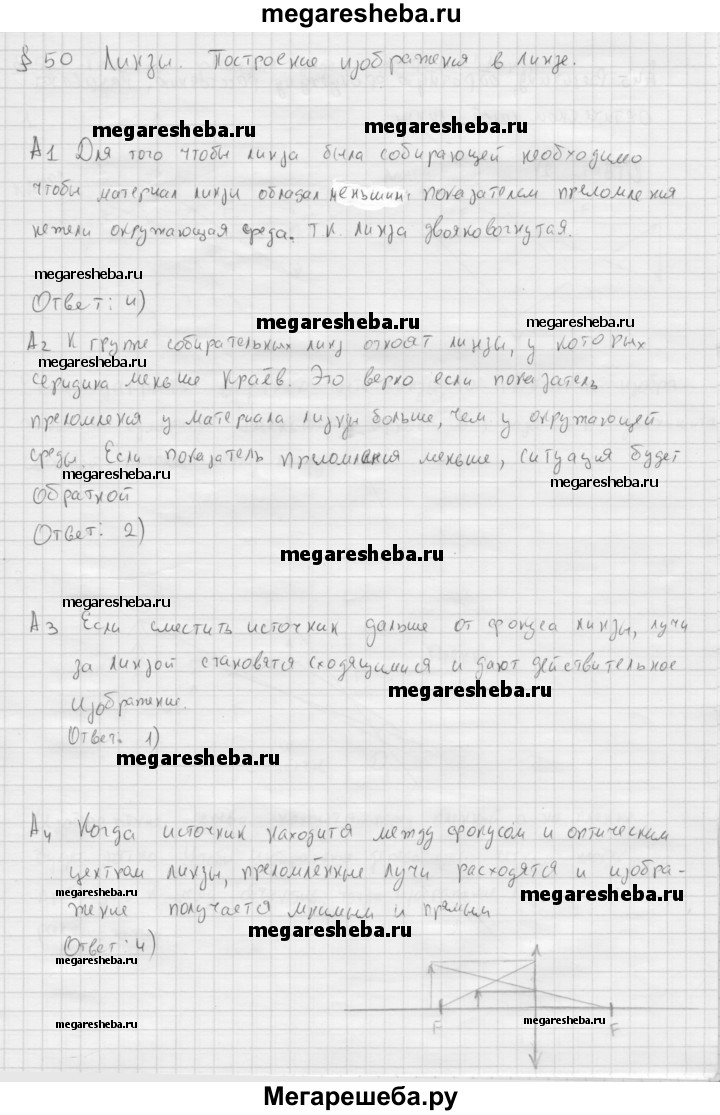 megaresheba.ru
§ 50 Линзы. Построение изображения в линзе.
megaresheba.ru megaresheba.ru
А1 Для того чтобы линза была собирающей необходимо
чтобы материал линзы обладал меньшим показателем преломления
нежели окружающая среда. Т.К. линза двояковогнутая.
megaresheba.ru
Ответ: 4)
megaresheba.ru megaresheba.ru
А2 К групе собирательных линз относят линзы, у которых
megaresheba.ru
середина меньше краёв. Это верно если показатель
преломления у материала линзы больше, чем у окружающей
среды. Если показатель преломления меньше, ситуация будет
megaresheba.ru megaresheba.ru
обраткой
Ответ: 2)
megaresheba.ru
megaresheba.ru
А3 Если сместить источник дальше от фокуса линзы, лучи
за линзой становятся сходящимися и дают действительное
megaresheba.ru
изображение.
Ответ: 1)
megaresheba.ru
А4 Когда источник находится между фокусом и оптическим
центром линзы, преломлённые лучи расходятся и изобра-
megaresheba.ru megaresheba.ru
жение получается мнимым и прямым
megaresheba.ru
Ответ: 4)
megaresheba.ru
F F
megaresheba.ru megaresheba.ru
Мегарешеба.ру